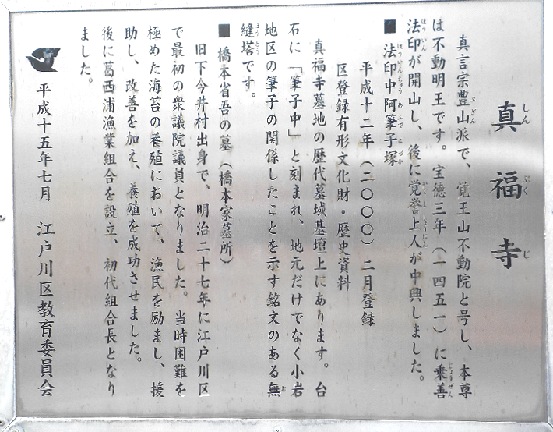 真福寺
真言宗豊山派で、寳王山不動院と号し、本尊
は不動明王です。宝徳三年（一四五一）に乗善
法印が開山し、後に覚誉上人が中興しました。
■法印中阿筆子塚
平成十二年（二〇〇〇）二月登録
区登録有形文化財・歴史資料
真福寺墓地の歴代墓域基壇上にあります。台
石に「筆子中」と刻まれ、地元だけでなく小岩
地区の筆子の関係したことを示す銘文のある無
縫塔です。
■橋本省吾の墓（橋本家墓所）
旧下今井村出身で、明治二十七年に江戸川区
で最初の衆議院議員となりました。当時困難を
極めた海苔の養殖において、漁民を励まし、援
助し、改善を加え、養殖を成功させました。
後に葛西浦漁業組合を設立、初代組合長となり
ました。
平成十五年七月　江戸川区教育委員会